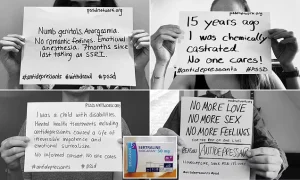 pssdnetwork.org
Numb genitals. Anorgasmia.
No romantic feelings. Emotional
anesthesia. 7 months since
last taking an SSRI.
#antidepressants #withdrawal #pssd
15 years ago
I was chemically
castrated.
No one cares!
#antidepressants #PSSD
pssdnetwork.org
I was a child with disabilities.
Mental health treatments including
antidepressants caused a life of
and emotional
No informed consent no one cares.
#antidepressants #pssd
SERTRALINE
NO MORE LOVE
NO MORE SEX
NO MORE FEELINGS
FOR THE REST OF OUR LIVES
ANTIDEPRESSANT